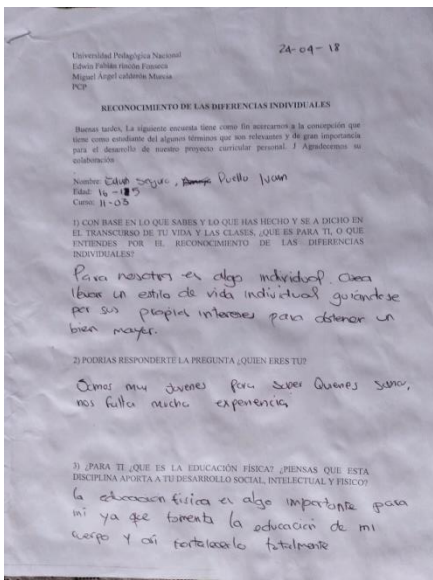 24-04-18
Universidad Pedagógica Nacional
Edwin Fabián rincón Fonseca
Miguel Ángel calderón Murcia
PCP
RECONOCIMIENTO DE LAS DIFERENCIAS INDIVIDUALES
Buenas tardes, La siguiente encuesta tiene como fin acercarnos a la concepción que
tiene como estudiante del algunos términos que son relevantes y de gran importancia
para el desarrollo de nuestro proyecto curricular personal. J Agradecemos su
colaboración
Nombre: Puello Juan
Edad: 16 -
Curso: 11-03
1) CON BASE EN LO QUE SABES Y LO QUE HAS HECHO Y SE A DICHO EN
EL TRANSCURSO DE TU VIDA Y LAS CLASES, ¿QUE ES PARA TI, O QUE
ENTIENDES POR EL RECONOCIMIENTO DE LAS DIFERENCIAS
INDIVIDUALES?
Para nosotros es algo individual.
llevar un estilo de vida individual guiandose
por sus propios intereses para obtener un
bien mayor.
2) PODRIAS RESPONDERTE LA PREGUNTA ¿QUIEN ERES TU?
Somos muy jovenes para saber Quienes somos,
nos falta mucha experiencia
3) ¿PARA TI ¿QUE ES LA EDUCACIÓN FÍSICA? ¿PIENSAS QUE ESTA
DISCIPLINA APORTA A TU DESARROLLO SOCIAL, INTELECTUAL Y FISICO?
la educacion fisica es algo importante para
mi ya que fomenta la educación de mi
cuerpo y asi fortalecerlo totalmente